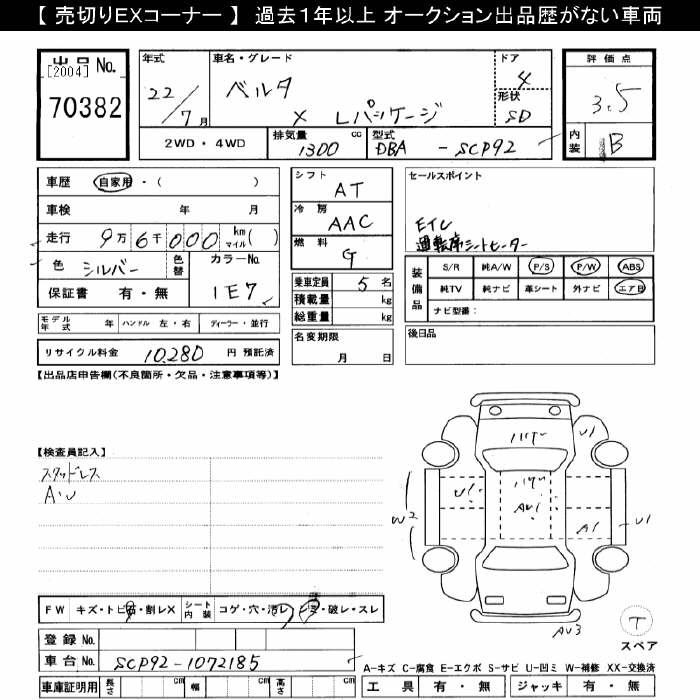 【 売切りEXコーナー 】 過去1年以上 オークション出品歴がない車両
出品 No.
[2004]
70382
年式 22/7月
車名・グレード
ベルタ
X Lパッケージ
ドア 4
形状 SD
評価点
3.5
内装 B
2WD ・ 4WD
排気量 1300 cc
型式 DBA - SCP92
車歴 自家用 ・ ( )
車検 年 月
走行 9万 6千 000 km マイル ( )
色 シルバー
色替
カラーNo. 1E7
保証書 有 ・ 無
モデル年式 年 ハンドル 左・右 ディーラー・並行
リサイクル料金 10,280 円 預託済
シフト AT
冷房 AAC
燃料 G
乗車定員 5 名
積載量 kg
総重量 kg
名変期限
月 日
セールスポイント
ETC
運転席シートヒーター
装備品
S/R 純A/W P/S P/W ABS
純TV 純ナビ 革シート 外ナビ エアB
ナビ型番:
後日品
【出品店申告欄(不良箇所・欠品・注意事項等)】
【検査員記入】
スタッドレス
A・U
FW キズ・トビ石・割レX シート内装 コゲ・穴・汚レ・シミ・破レ・スレ
登録 No.
車台 No. SCP92-1072185
車庫証明用 長さ cm 幅 cm 高さ cm
U1
AU1
U1
W2
A1
U1
AU3
T
スペア
A-キズ C-腐食 E-エクボ S-サビ U-凹ミ W-補修 XX-交換済
工具 有 ・ 無 ジャッキ 有 ・ 無